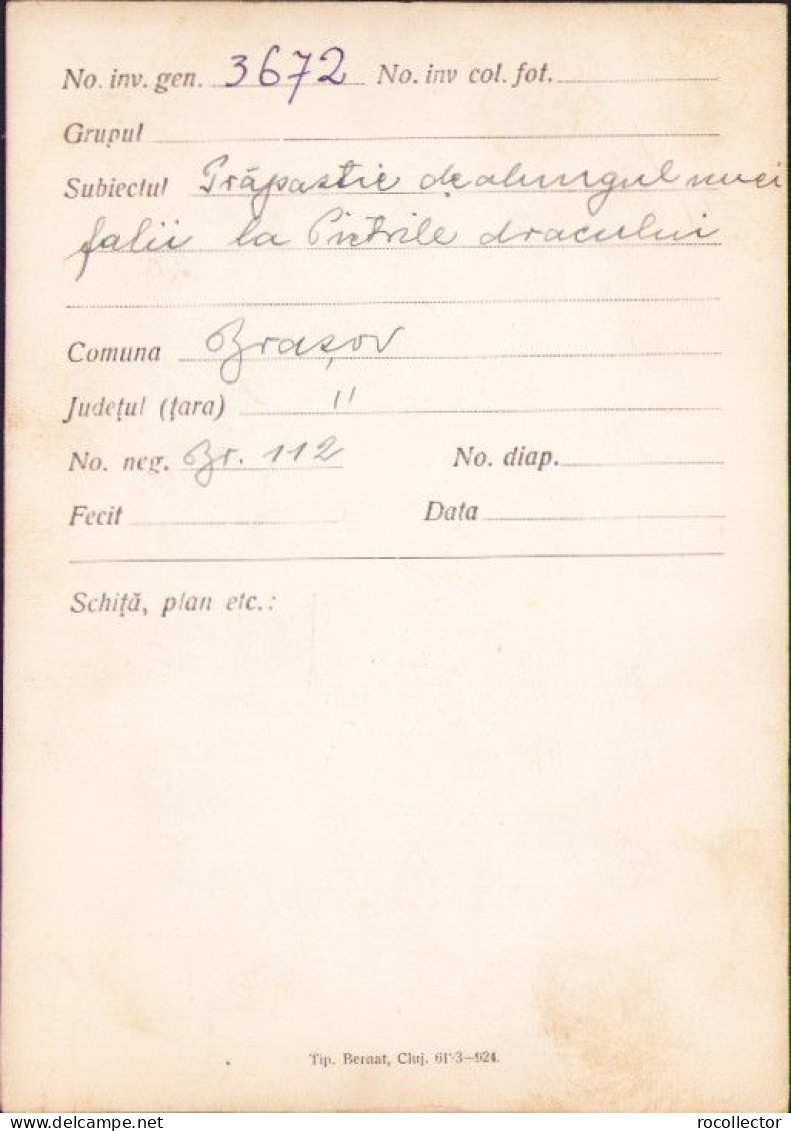 No. inv. gen. 3672 No. inv col. fot.
Grupul
Subiectul Prăpastie dealungul unei
falii la Pietrile dracului
Comuna Brașov
Județul (țara) "
No. neg. Br. 112 No. diap.
Fecit Data
Schiță, plan etc.:
Tip. Bernat, Cluj.
delcampe.net
rocollector